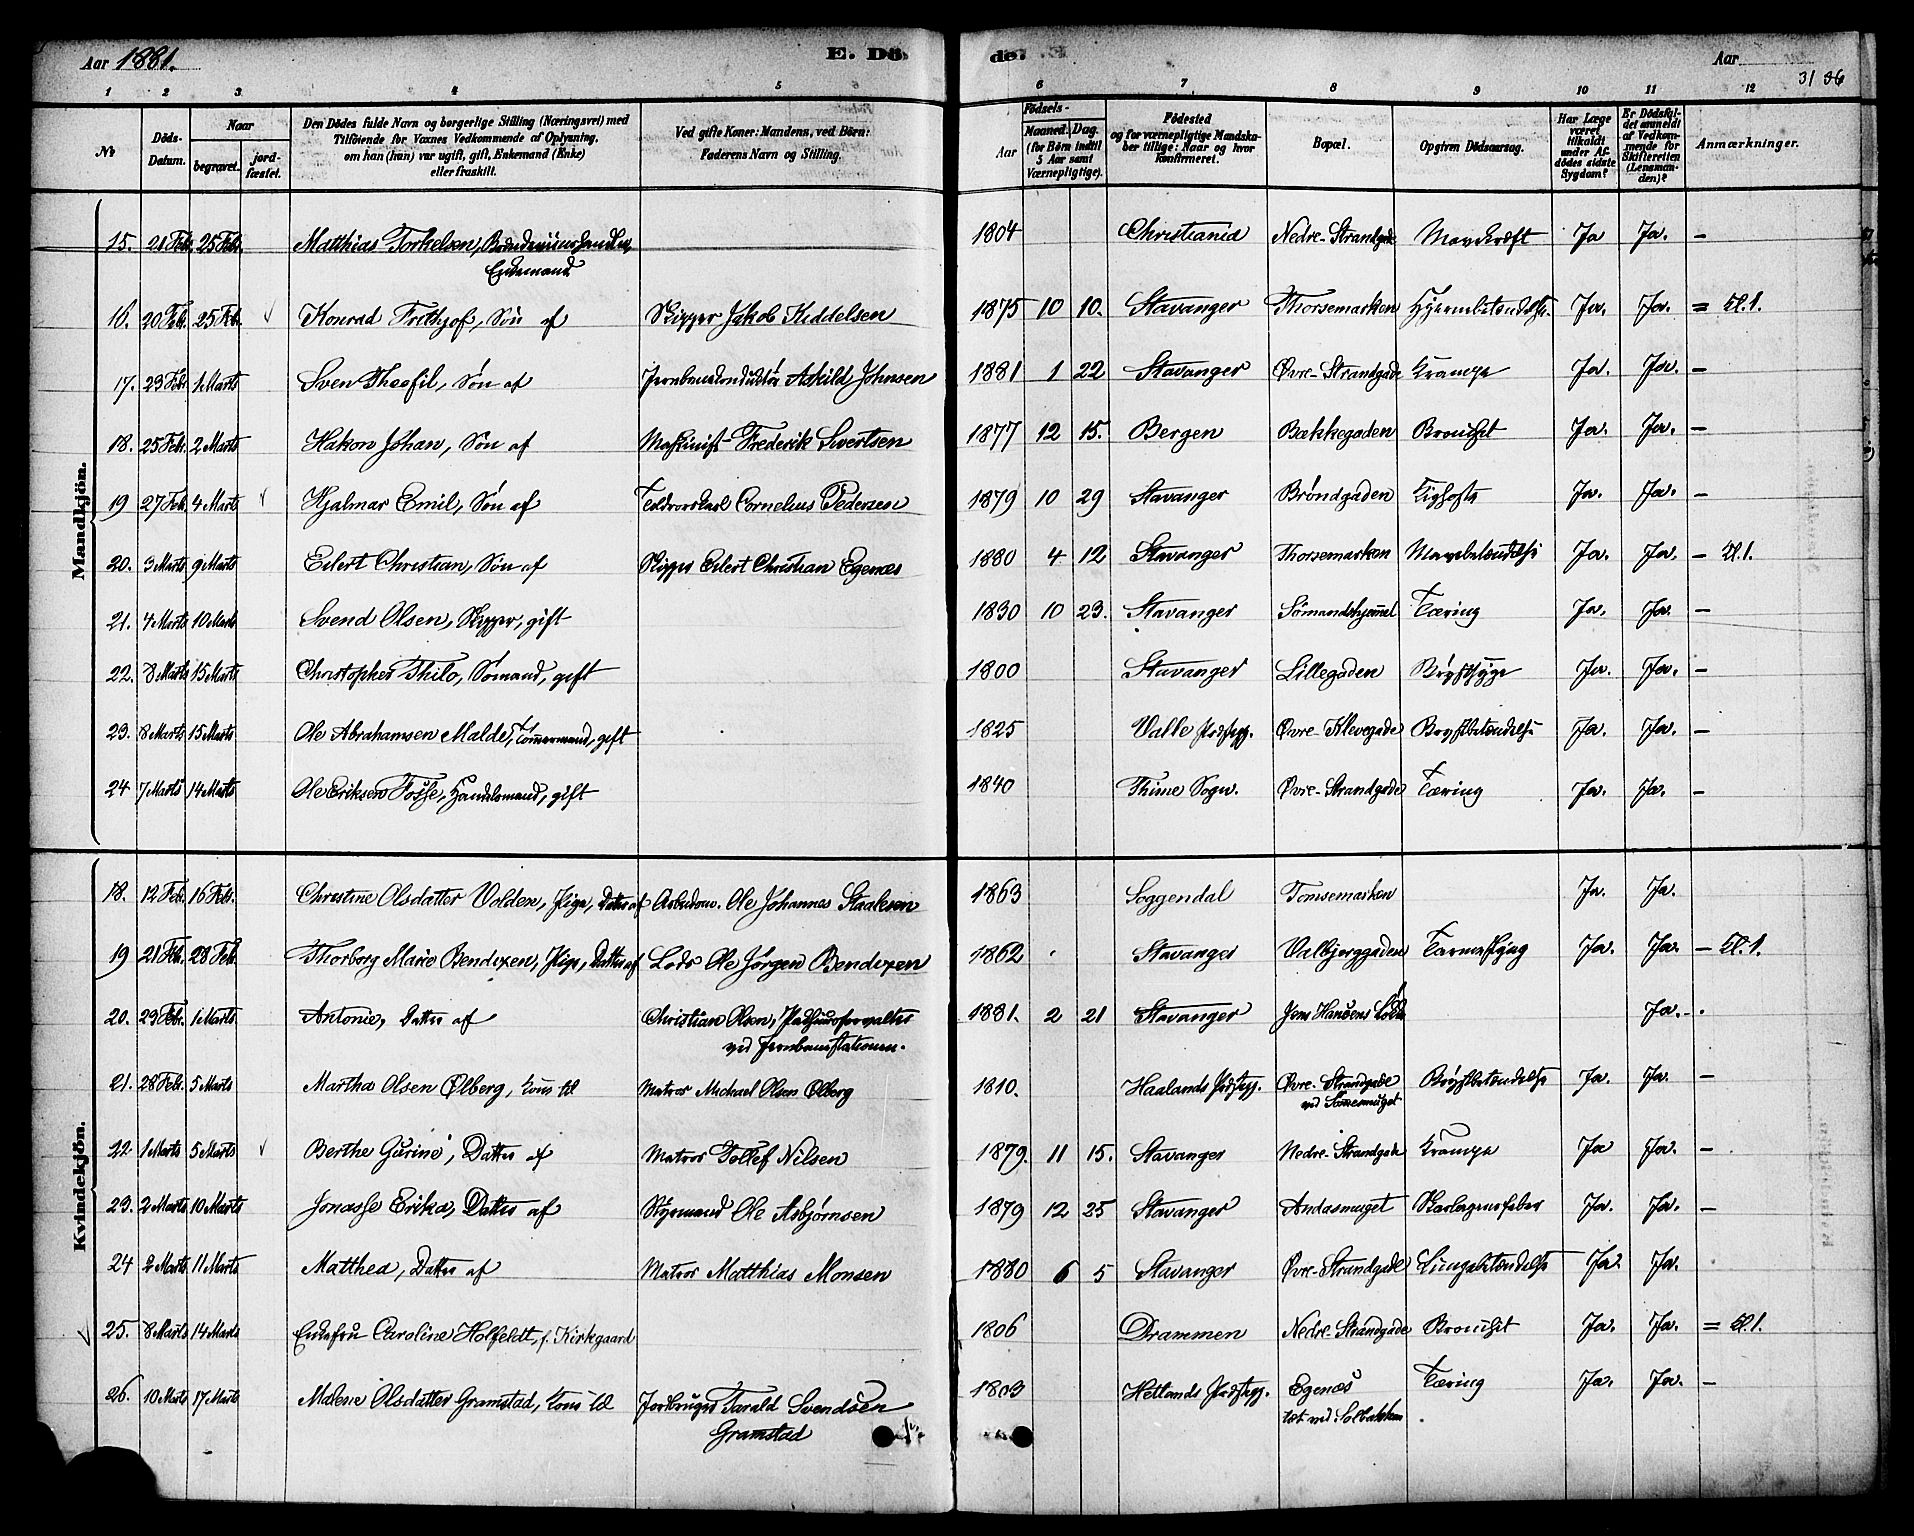 Aar 1881. E. Döde. Aar
31 36
1 2 3 4 5 6 7 8 9 10 11 12
No
Döds-Datum.
Naar
begravet.
jord-fæstet.
Den Dödes fulde Navn og borgerlige Stilling (Næringsvei) med
Tilföiende for Voxnes Vedkommende af Oplysning,
om han (hun) var ugift, gift, Enkemand (Enke)
eller fraskilt.
Ved gifte Koner: Mandens, ved Börn:
Faderens Navn og Stilling.
Födsels-
Aar
Maaned. Dag.
(for Börn indtil
5 Aar samt
Værnepligtige).
Födested
og for værnepligtige Mandska-
ber tillige: Naar og hvor
konfirmeret.
Bopæl.
Opgiven Dödsaarsag.
Har Læge
været
tilkaldt
under Af-
dödes sidste
Sygdom?
Er Dödsfal-
det anmeldt
af Vedkom-
mende for
Skifteretten
(Lensman-
den)?
Anmærkninger.
Mandkjön.
15. 21 Febr. 25 Febr. Matthias Torkelsen, Enkemand 1804 Christiania Nedre-Strandgade Ja Ja. –
16. 20 Febr. 25 Feb. Konrad Frithjof, Søn af Skipper Jakob Kiddelsen 1875 10 10. Stavanger Thorsemarken Hjernebetændelse. Ja. Ja. = Kl. 1.
17. 23 Febr. 1 Marts Sven Theofil, Søn af Jernbanekonduktør Askild Johnsen 1881 1 22 Stavanger Øvre-Strandgade Krampe Ja. Ja. –
18. 25 Febr. 2 Marts Hakon Johan, Søn af Maskinist Frederik Sivertsen 1877 12 15. Bergen Bækkegaden Bronchit Ja. Ja. –
19 27 Feb. 4 Marts Hjalmar Emil, Søn af Cornelius Pedersen 1879 10 29 Stavanger Brøndgaden Kighoste Ja. Ja. –
20. 3 Marts 9 Marts Eilert Christian, Søn af Skipper Eilert Christian Egenæs 1880 4 12 Stavanger Thorsemarken Mavebetændelse Ja. Ja. – Kl. 1.
21. 4 Marts 10 Marts Svend Olsen, Skipper, gift 1830 10 23. Stavanger Sømandshjemmet Tæring Ja. Ja. –
22. 8 Marts 15 Marts Christopher Thilo, Sømand, gift 1800 Stavanger Lillegaden Brystsyge Ja. Ja. –
23. 8 Marts 15 Marts Ole Abrahamsen Malde, Tømmermand, gift 1825 Valle Præstegj. Øvre-Klevegade Brystbetændelse Ja. Ja. –
24 7 Marts 14 Marts Ole Eriksen Fosse, Handelsmand, gift 1840 Thime Sogn. Øvre-Strandgade Tæring Ja. Ja. –
Kvindekjön.
18. 12 Feb. 16 Feb. Christine Olsdatter Volden, Pige, Datter af Arbeidsm. Ole Johannes Staalesen 1863 Soggendal Tomsemarken Ja. Ja.
19 21 Feb. 28 Feb. Thorborg Marie Bendixen, Pige, Datter af Lods Ole Jørgen Bendixen 1862 Stavanger Valbjerggaden Tarmeslyng Ja. Ja. – Kl. 1.
20. 23 Febr. 1 Marts Antonie, Datter af Christian Olsen, Pakhusforvalter
ved Jernbanestationen. 1881. 2 21 Stavanger Jens Hansens Ja. –.
21. 28 Febr. 5 Marts Martha Olsen Ølberg, Kone til Matros Michael Olsen Ølberg 1810. Haalands Præstegj. Øvre-Strandgade
ved Brystbetændelse Ja. Ja. –
22 1 Marts 5 Marts Berthe Gurine, Datter af Matros Tollef Nilsen 1879. 11 15. Stavanger Nedre-Strandgade Krampe Ja Ja. –
23. 2 Marts 10 Marts Jonasse Erika, Datter af Styrmand Ole Asbjørnsen 1879 12 25 Stavanger Andasmuget Skarlagensfeber Ja. Ja. –
24 2 Marts 11 Marts Matthea, Datter af Matros Matthias Monsen 1880 6 5 Stavanger Øvre-Strandgade Lungebetændelse Ja. Ja.
25. 8 Marts 14 Marts Enkefru Caroline Holfeldt, f. Kirkgaard 1806 Drammen Nedre-Strandgade Bronchit Ja. Ja. = Kl. 1.
26. 10 Marts 17 Marts Malene Olsdatter Gramstad, Kone til Jordbruger Tarald Svendsen
Gramstad 1803 Hetlands Præstegj. Egenæs
tæt ved Solbakken Tæring Ja. Ja. –